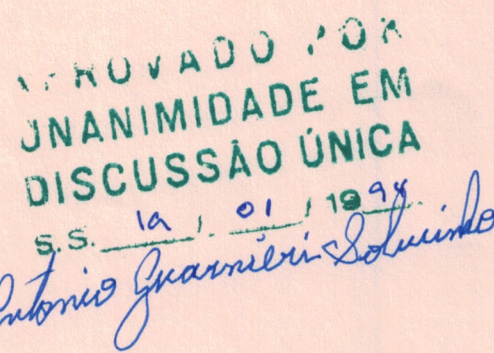 APROVADO POR
UNANIMIDADE EM
DISCUSSÃO ÚNICA
S.S. 19 / 01 / 1994
Antonio Guarnieri Sobrinho